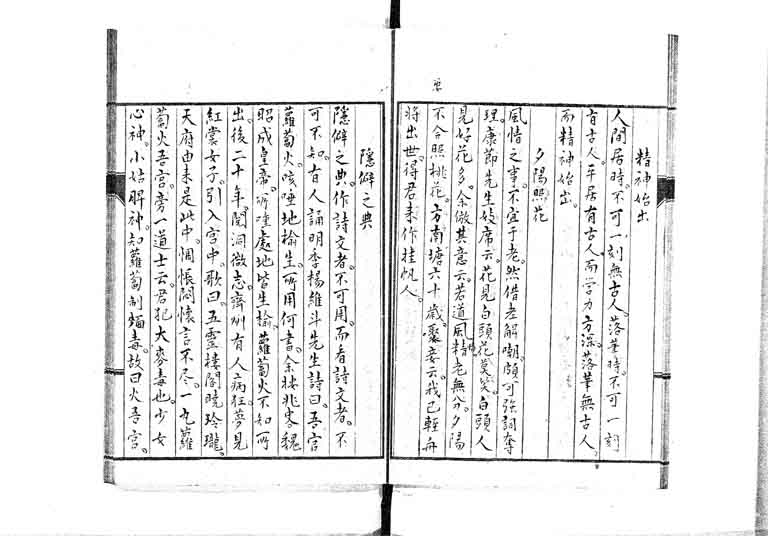 精神始出
人間居時。不可一刻無古人。落筆時。不可一刻
有古人。平居有古人。而學力方深。落筆無古人。
而精神始出。
夕陽照花
風情之事。不宜于老。然借老解嘲。頗可強詞奪
理。康節先生妓席云。花見白頭花莫笑。白頭人
見好花多。余倣其意云。若道風情老無分。夕陽
不合照桃花。方南塘六十歲。娶妾云。我已輕舟
將出世。得君來作挂帆人。
隱僻之典
隱僻之典。作詩文者。不可用。而看詩文者。不
可不知。有人誦明季楊維斗先生詩曰。吾宮
蘿蔔火。咳唾地榆生。所用何書。余按北客魏
昭成皇帝。所唾處地皆生榆。蘿蔔火不知所
出。後二十年。閱洞微志。齊州有人病狂。夢見
紅裳女子。引入宮中。歌曰。五靈樓閣曉玲瓏。
天府由來是此中。惆悵悶懷言不尽。一丸蘿
蔔火吾宮。旁一道士云。君犯大麥毒也。少女
心神。小姑脾神。知蘿蔔制麵毒。故曰火吾宮。